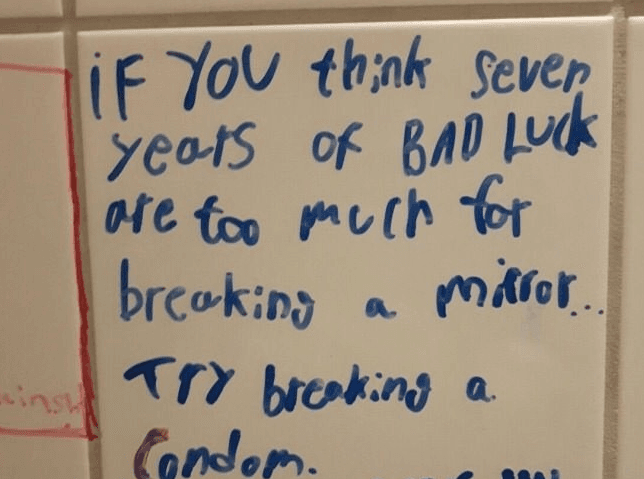 iF YOU think seven
years of BAD LUCK
are too much for
breaking a mirror...
TrY breaking a
Condom.